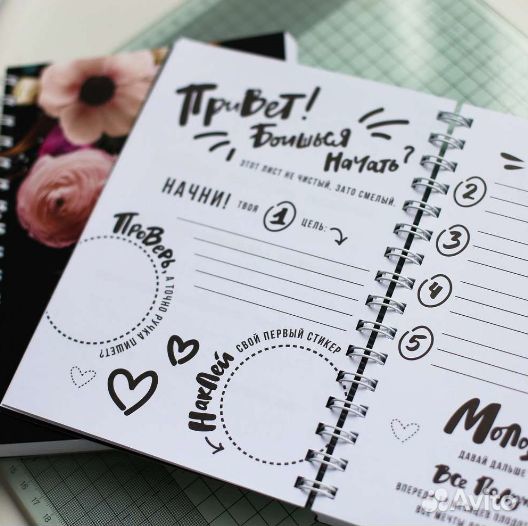 Привет!
Боишься
начать?
этот лист не чистый, зато смелый.
начни! твоя 1 цель:
Проверь,
а точно ручка пишет?
Наклей
свой первый стикер
2
3
4
5
давай дальше
Все
вперед
Avito
15
16
17
18